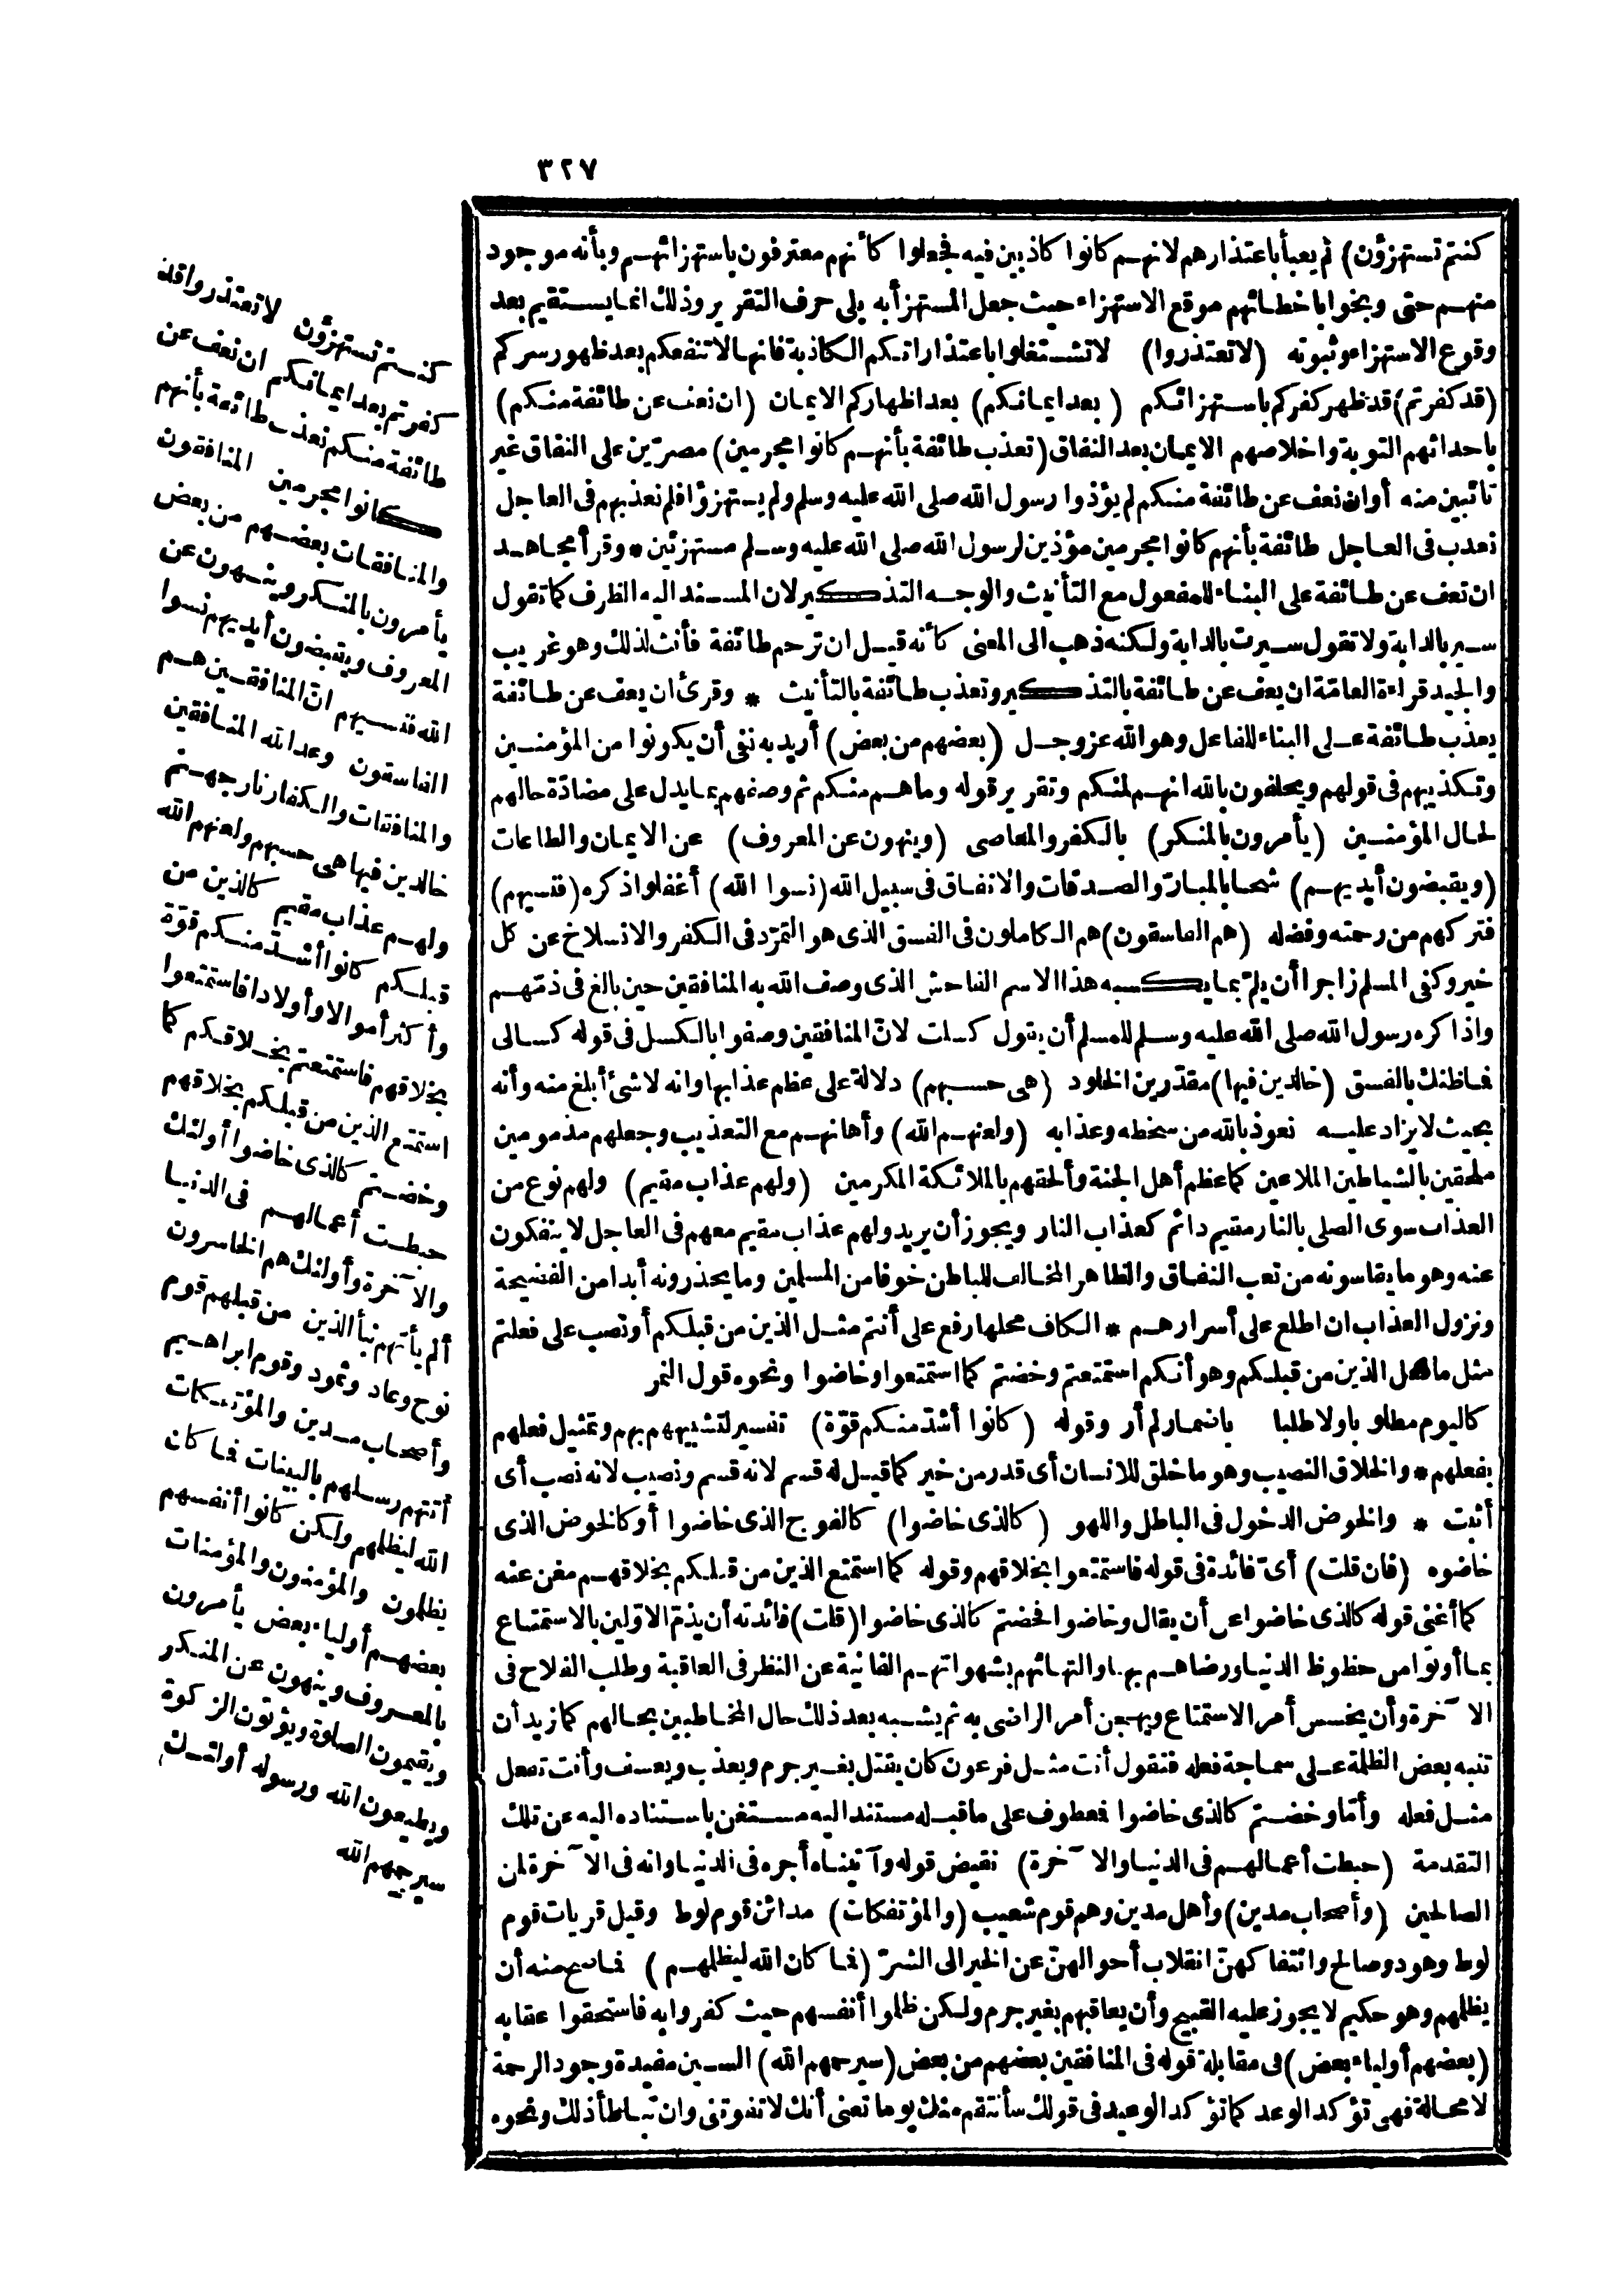 ٣٢٧
كنتم تستهزؤن) لم يعبأ باعتذارهم لانهم كانوا كاذبين فيه فجعلوا كأنهم معترفون باستهزائهم وبأنه موجود
منهم حتى وبخوا باخطائهم موقع الاستهزاء حيث جعل المستهزأ به يلى حرف التقرير وذلك انما يستقيم بعد
وقوع الاستهزاء وثبوته (لا تعتذروا) لا تشتغلوا باعتذاراتكم الكاذبة فانها لا تنفعكم بعد ظهور سركم
(قد كفرتم) قد ظهر كفركم باستهزائكم (بعد ايمانكم) بعد اظهاركم الايمان (ان نعف عن طائفة منكم)
باحداثهم التوبة واخلاصهم الايمان بعد النفاق (نعذب طائفة بأنهم كانوا مجرمين) مصرّين على النفاق غير
تائبين منه أو ان نعف عن طائفة منكم لم يؤذوا رسول الله صلى الله عليه وسلم ولم يستهزؤا فلم نعذبهم فى العاجل
نعذب فى العاجل طائفة بأنهم كانوا مجرمين مؤذين لرسول الله صلى الله عليه وسلم مستهزئين * وقرأ مجاهد
ان تعف عن طائفة على البناء للمفعول مع التأنيث والوجه التذكير لان المسند اليه الظرف كما تقول
سير بالدابة ولا تقول سيرت بالدابة ولكنه ذهب الى المعنى كأنه قيل ان ترحم طائفة فأنث لذلك وهو غريب
والجيد قراءة العامّة ان يعف عن طائفة بالتذكير وتعذب طائفة بالتأنيث * وقرئ ان يعف عن طائفة
يعذب طائفة على البناء للفاعل وهو الله عز وجل (بعضهم من بعض) أريد به نفى أن يكونوا من المؤمنين
وتكذيبهم فى قولهم ويحلفون بالله انهم لمنكم وتقرير قوله وما هم منكم ثم وصفهم بما يدل على مضادّة حالهم
لحال المؤمنين (يأمرون بالمنكر) بالكفر والمعاصى (وينهون عن المعروف) عن الايمان والطاعات
(ويقبضون أيديهم) شحا بالمبارّ والصدقات والانفاق فى سبيل الله (نسوا الله) أغفلوا ذكره (فنسيهم)
فتركهم من رحمته وفضله (هم الفاسقون) هم الكاملون فى الفسق الذى هو التمرّد فى الكفر والانسلاخ عن كل
خير وكفى المسلم زاجرا أن يلمّ بما يكسبه هذا الاسم الفاحش الذى وصف الله به المنافقين حين بالغ فى ذمّهم
واذا كره رسول الله صلى الله عليه وسلم للمسلم أن يقول كسلت لانّ المنافقين وصفوا بالكسل فى قوله كسالى
فما ظنك بالفسق (خالدين فيها) مقدّرين الخلود (هى حسبهم) دلالة على عظم عذابها وانه لا شئ أبلغ منه وأنه
بحيث لا يزاد عليه نعوذ بالله من سخطه وعذابه (ولعنهم الله) وأهانهم مع التعذيب وجعلهم مذمومين
ملحقين بالشياطين الملاعين كما عظم أهل الجنة وألحقهم بالملائكة المكرمين (ولهم عذاب مقيم) ولهم نوع من
العذاب سوى الصلى بالنار مقيم دائم كعذاب النار ويجوز أن يريد ولهم عذاب مقيم معهم فى العاجل لا ينفكون
عنه وهو ما يقاسونه من تعب النفاق والظاهر المخالف للباطن خوفا من المسلمين وما يحذرونه أبدا من الفضيحة
ونزول العذاب ان اطلع على أسرارهم * الكاف محلها رفع على أنتم مثل الذين من قبلكم أو نصب على فعلتم
مثل ما فعل الذين من قبلكم وهو أنكم استمتعتم وخضتم كما استمتعوا وخاضوا ونحوه قول النمر
كاليوم مطلوبا ولا طلبا باضمار لم أر وقوله (كانوا أشدّ منكم قوّة) تفسير لتشبيههم بهم وتمثيل فعلهم
بفعلهم * والخلاق النصيب وهو ما خلق للانسان أى قدر من خير كما قيل له قسم لانه قسم ونصيب لانه نصب أى
أثبت * والخوض الدخول فى الباطل واللهو (كالذى خاضوا) كالفوج الذى خاضوا أو كالخوض الذى
خاضوه (فان قلت) أىّ فائدة فى قوله فاستمتعوا بخلاقهم وقوله كما استمتع الذين من قبلكم بخلاقهم مغن عنه
كما أغنى قوله كالذى خاضوا عن أن يقال وخاضوا فخضتم كالذى خاضوا (قلت) فائدته أن يذمّ الاوّلين بالاستمتاع
بما أوتوا من حظوظ الدنيا ورضاهم بها والتهائهم بشهواتهم الفانية عن النظر فى العاقبة وطلب الفلاح فى
الآخرة وأن يخسس أمر الاستمتاع ويهجن أمر الراضى به ثم يشبه بعد ذلك حال المخاطبين بحالهم كما تريد أن
تنبه بعض الظلمة على سماجة فعله فتقول أنت مثل فرعون كان يقتل بغير جرم ويعذب ويعسف وأنت تفعل
مثل فعله وأمّا وخضتم كالذى خاضوا فعطوف على ما قبله مستند اليه مستغن باستناده اليه عن تلك
التقدمة (حبطت أعمالهم فى الدنيا والآخرة) نقيض قوله وآتيناه أجره فى الدنيا وانه فى الآخرة لمن
الصالحين (وأصحاب مدين) وأهل مدين وهم قوم شعيب (والمؤتفكات) مدائن قوم لوط وقيل قريات قوم
لوط وهود وصالح وائتفاكهنّ انقلاب أحوالهنّ عن الخير الى الشرّ (فما كان الله ليظلمهم) فما صح منه أن
يظلمهم وهو حكيم لا يجوز عليه القبيح وأن يعاقبهم بغير جرم ولكن ظلموا أنفسهم حيث كفروا به فاستحقوا عقابه
(بعضهم أولياء بعض) فى مقابلة قوله فى المنافقين بعضهم من بعض (سيرحمهم الله) السين مفيدة وجود الرحمة
لا محالة فهى تؤكد الوعد كما تؤكد الوعيد فى قولك سأنتقم منك يوما تعنى أنك لا تفوتنى وان تباطأ ذلك ونحوه
كنتم تستهزؤن لا تعتذروا قد
كفرتم بعد ايمانكم ان نعف عن
طائفة منكم نعذب طائفة بأنهم
كانوا مجرمين المنافقون
والمنافقات بعضهم من بعض
يأمرون بالمنكر وينهون عن
المعروف ويقبضون أيديهم نسوا
الله فنسيهم انّ المنافقين هم
الفاسقون وعد الله المنافقين
والمنافقات والكفار نار جهنم
خالدين فيها هى حسبهم ولعنهم الله
ولهم عذاب مقيم كالذين من
قبلكم كانوا أشدّ منكم قوّة
وأكثر أموالا وأولادا فاستمتعوا
بخلاقهم فاستمتعتم بخلاقكم كما
استمتع الذين من قبلكم بخلاقهم
وخضتم كالذى خاضوا أولئك
حبطت أعمالهم فى الدنيا
والآخرة وأولئك هم الخاسرون
ألم يأتهم نبأ الذين من قبلهم قوم
نوح وعاد وثمود وقوم ابراهيم
وأصحاب مدين والمؤتفكات
أتتهم رسلهم بالبينات فما كان
الله ليظلمهم ولكن كانوا أنفسهم
يظلمون والمؤمنون والمؤمنات
بعضهم أولياء بعض يأمرون
بالمعروف وينهون عن المنكر
ويقيمون الصلوة ويؤتون الزكوة
ويطيعون الله ورسوله أولئك
سيرحمهم الله